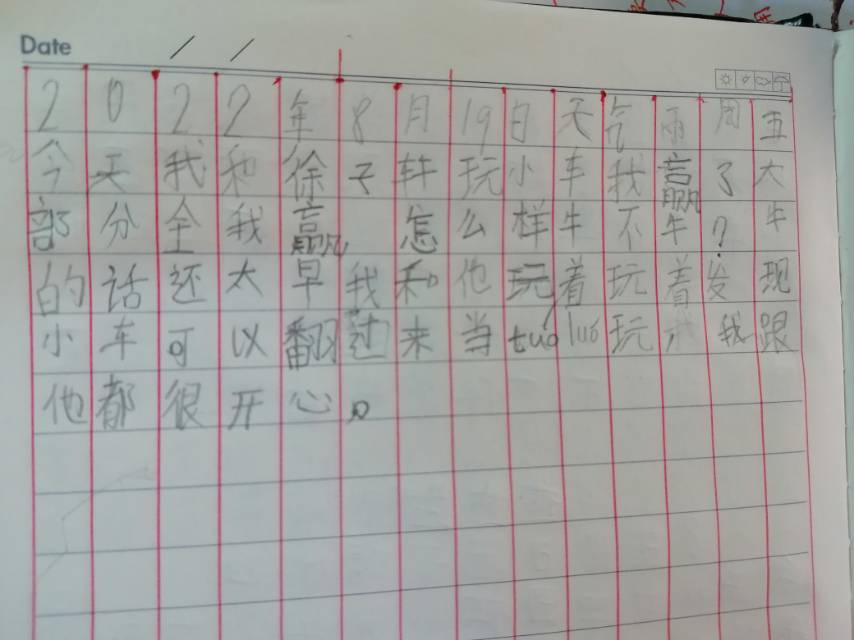 Date / /
2022年8月19日天气雨周五
今天我和徐子轩玩小车我赢了大
部分全我赢 怎么样牛不牛?牛
的话还太早我和他玩着玩着发现
小车可以翻过来当tuó luó玩,我跟
他都很开心。